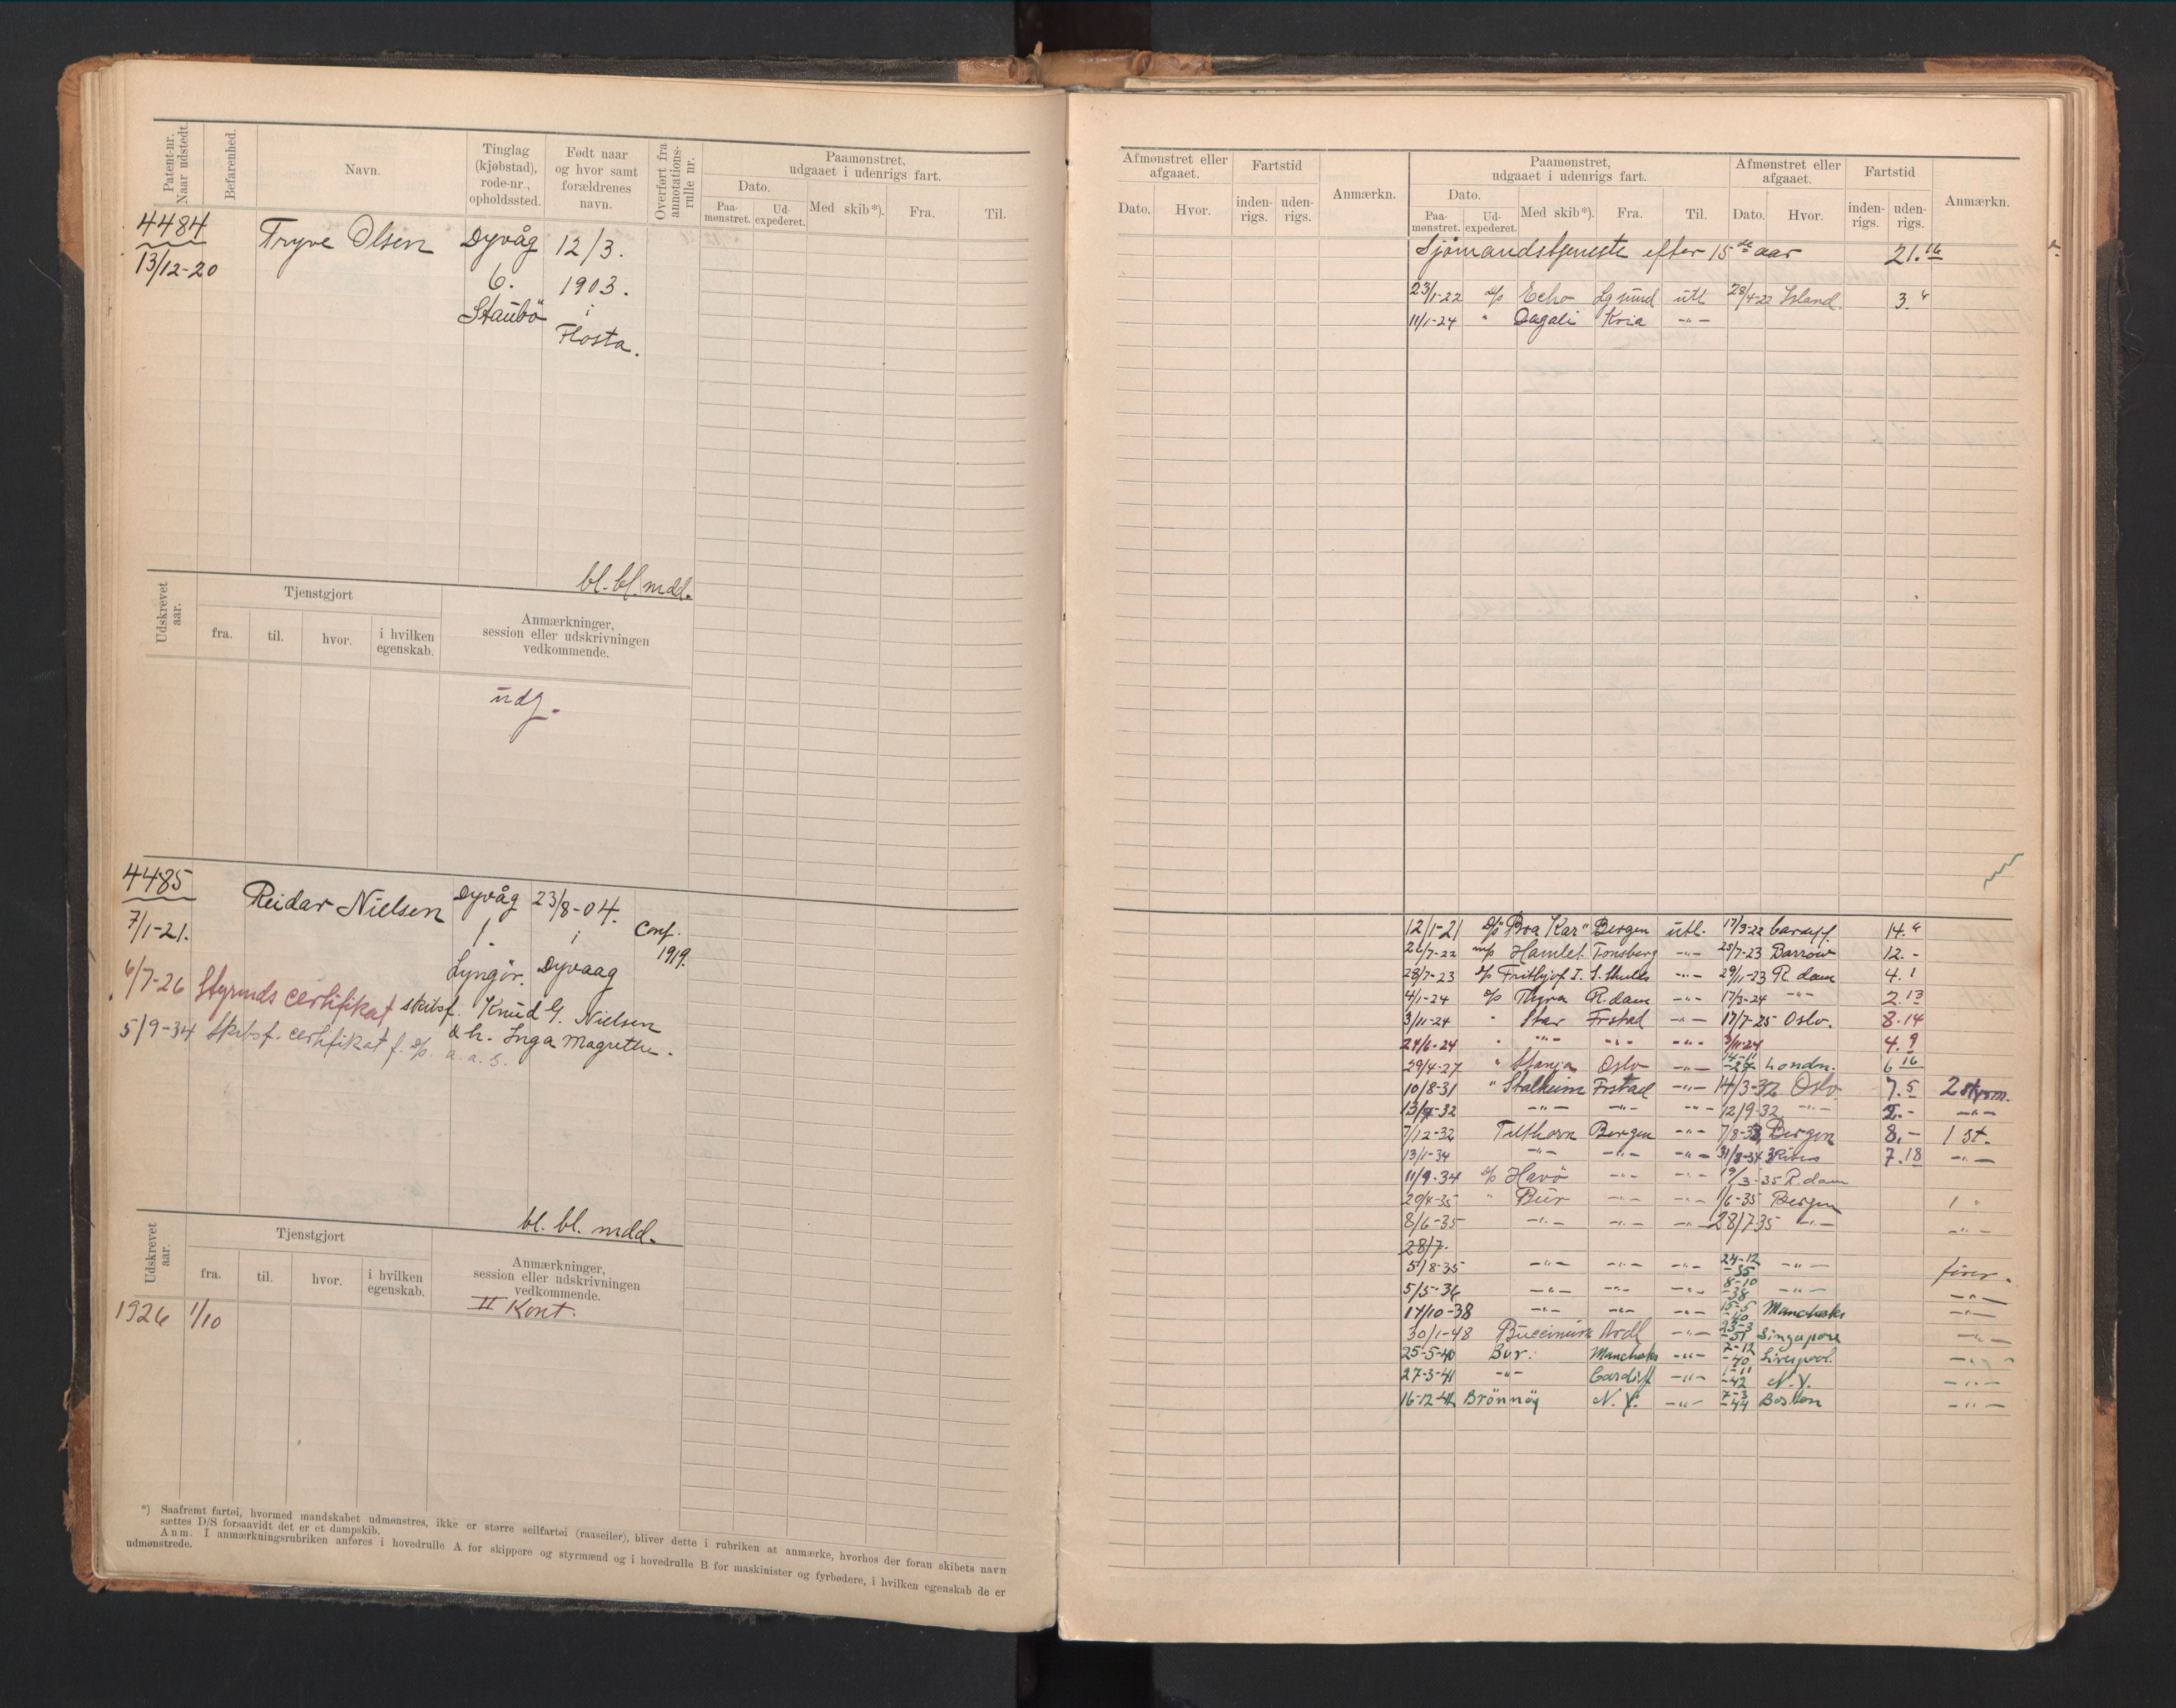 Patent-nr. Naar udstedt.
Befarenhed.
Navn.
Tinglag (kjøbstad), rode-nr., opholdssted.
Født naar og hvor samt forældrenes navn.
Overført fra annotations-rulle nr.
Paamønstret, udgaaet i udenrigs fart.
Dato.
Paa-mønstret.
Ud-expederet.
Med skib*).
Fra.
Til.
4484
13/12-20
Tryve Olsen
Dyvåg
6.
Staubö
12/3.
1903.
i
Flosta.
bl. bl. mdd.
Udskrevet aar.
Tjenstgjort
fra.
til.
hvor.
i hvilken egenskab.
Anmærkninger, session eller udskrivningen vedkommende.
udg.
4485
7/1-21.
Reidar Nielsen
Dyvåg
1.
Lyngör.
23/8-04.
i
Dyvaag
Conf. 1919.
skibsf. Knud G. Nielsen
& h. Inga Magrethe.
6/7-26 Styrmds certifikat
5/9-34 Skibsf. certifikat f. d/s. a. a. s.
bl. bl. mdd.
Udskrevet aar.
Tjenstgjort
fra.
til.
hvor.
i hvilken egenskab.
Anmærkninger, session eller udskrivningen vedkommende.
1926 1/10
II Kont.
*) Saafremt fartøi, hvormed mandskabet udmønstres, ikke er større seilfartøi (raaseiler), bliver dette i rubriken at anmærke, hvorhos der foran skibets navn
sættes D/S forsaavidt det er et dampskib.
Anm. I anmærkningsrubriken anføres i hovedrulle A for skippere og styrmænd og i hovedrulle B for maskinister og fyrbødere, i hvilken egenskab de er
udmønstrede.
Afmønstret eller afgaaet.
Dato.
Hvor.
Fartstid
inden-rigs.
uden-rigs.
Anmærkn.
Paamønstret, udgaaet i udenrigs fart.
Dato.
Paa-mønstret.
Ud-expederet.
Med skib*).
Fra.
Til.
Afmønstret eller afgaaet.
Dato.
Hvor.
Fartstid
inden-rigs.
uden-rigs.
Anmærkn.
Sjömandstjeneste efter 15de aar 21.16
23/1-22 d/s Echo Lgsund utl 28/4-22 Island. 3.6
11/1-24 " Dagali Kria -"-
12/1-21 d/s Bra Kar" Bergen utl. 17/3-22 Cardiff. 14.6
26/7-22 m/s Hamlet Tonsberg -"- 25/7-23 Barrow 12.-
28/7-23 d/s Frithjof I. S. Shields -"- 29/11-23 R.dam 4.1
4/1-24 d/s Thyra R.dam -"- 17/3-24 -"- 2.13
3/11-24 " Star Frstad -"- 17/7-25 Oslo. 8.14
24/6-24 " -"- -"- -"- 3/11-24 4.9
29/4-27 " Stanja Oslo -"- 14-11-27 Londn. 6 16
10/8-31 " Stalheim Frstad -"- 14/3-32 Oslo 7.5 2 styrm.
13/4-32 -"- -"- -"- 12/9-32 -"- 5.- -"-
7/12-32 Titthorn Bergen -"- 7/8-33 Bergen 8.- 1 st.
13/1-34 -"- -"- -"- 31/8-34 3 Rivers 7.18 -"-
11/9-34 d/s Havö -"- -"- 19/3-35 R.dam
20/4-35 " Bur -"- -"- 1/6-35 Bergen 1 "
8/6-35 -"- -"- -"- 28/7 35 -"- -"-
28/7.
5/8-35 -"- -"- -"- 24-12-35 -"- förer.
5/5-36 -"- -"- -"- 8-10-38 -"- -"-
17/10-38 -"- -"- -"- 15-5-40 Manchester -"-
30/1-48 Buccinum Ardl -"- 23-3-51 Singapore -"-
25-5-40 Bur. Manchester -"- 7-12-40 Liverpool. -"-
27-3-41 -"- Cardiff -"- 1-11-42 N.Y. -"-
16-12-42 Brönnöy N.Y. -"- 7-3-44 Boston -"-